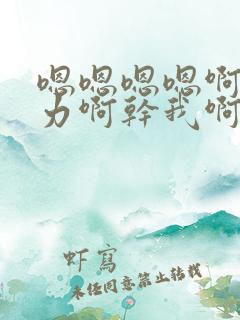 嗯嗯嗯嗯啊
力啊幹我啊
虾寫
未经同意禁止转载